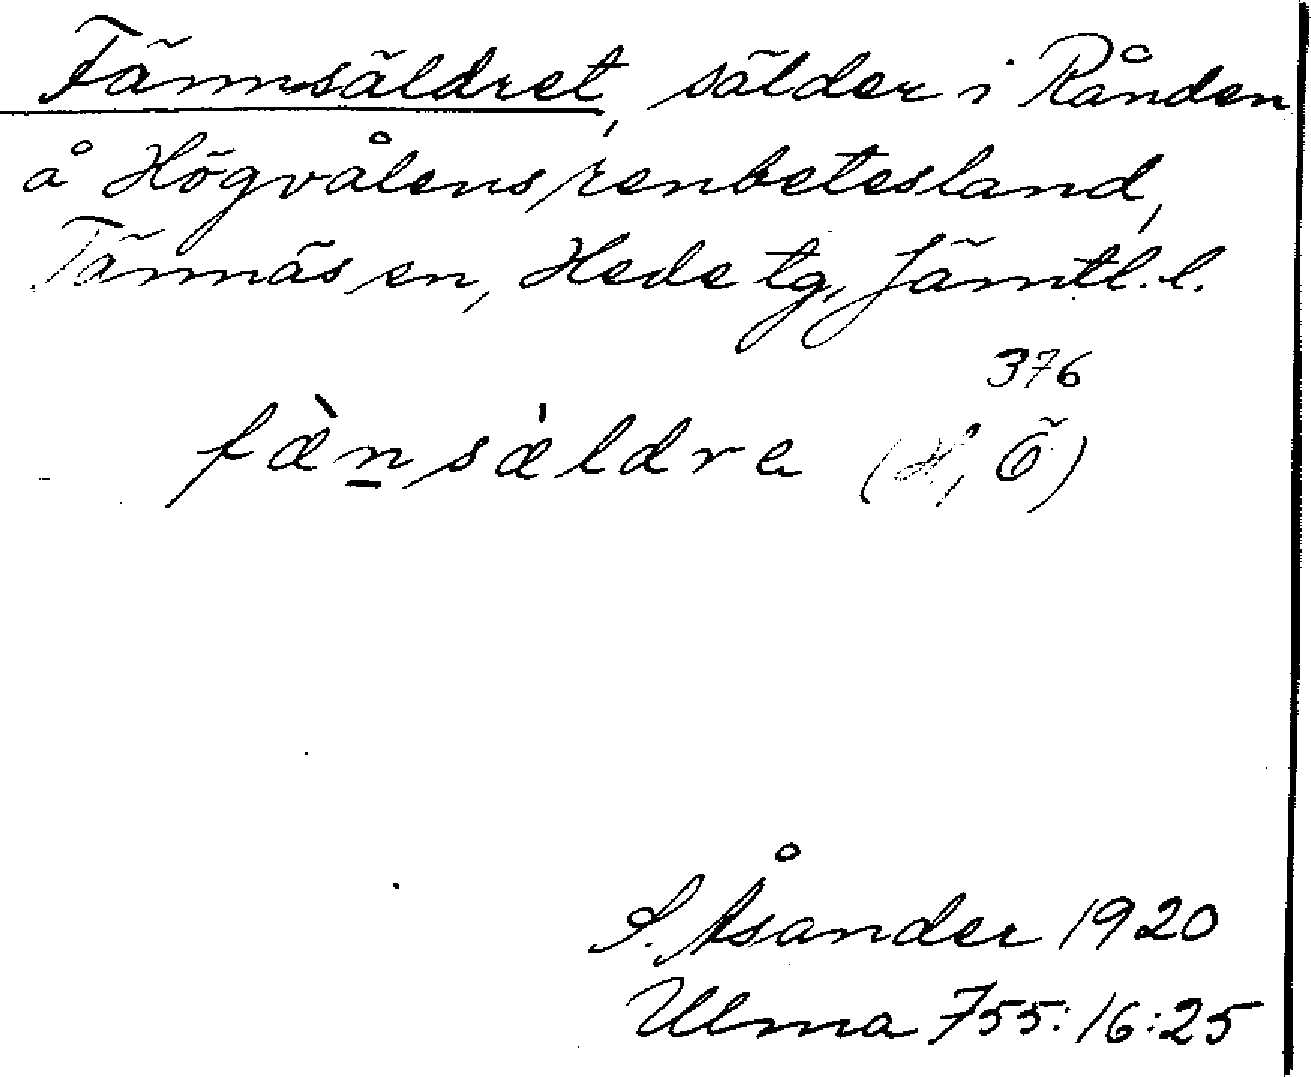 Fännsäldret, sälder i Rånden
å Högvålens renbetesland,
Tännäs sn, Hede tg, Jämtl. l.
376
fæ̀n̲sældra (H, Ö)
S. Åsander 1920
Ulma 755:16:25